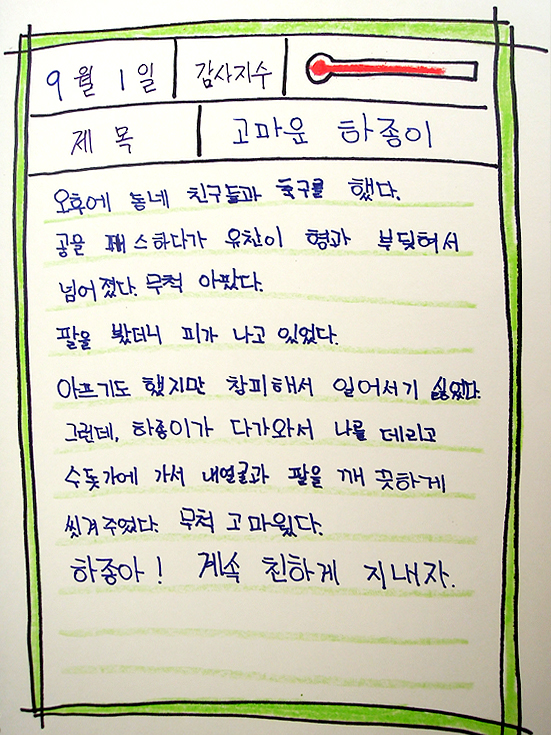 9월 1일 감사지수
제 목 고마운 하종이
오후에 동네 친구들과 축구를 했다.
공을 패스하다가 유찬이 형과 부딪혀서
넘어졌다. 무척 아팠다.
팔을 봤더니 피가 나고 있었다.
아프기도 했지만 창피해서 일어서기 싫었다.
그런데, 하종이가 다가와서 나를 데리고
수돗가에 가서 내얼굴과 팔을 깨끗하게
씻겨주었다. 무척 고마웠다.
하종아! 계속 친하게 지내자.